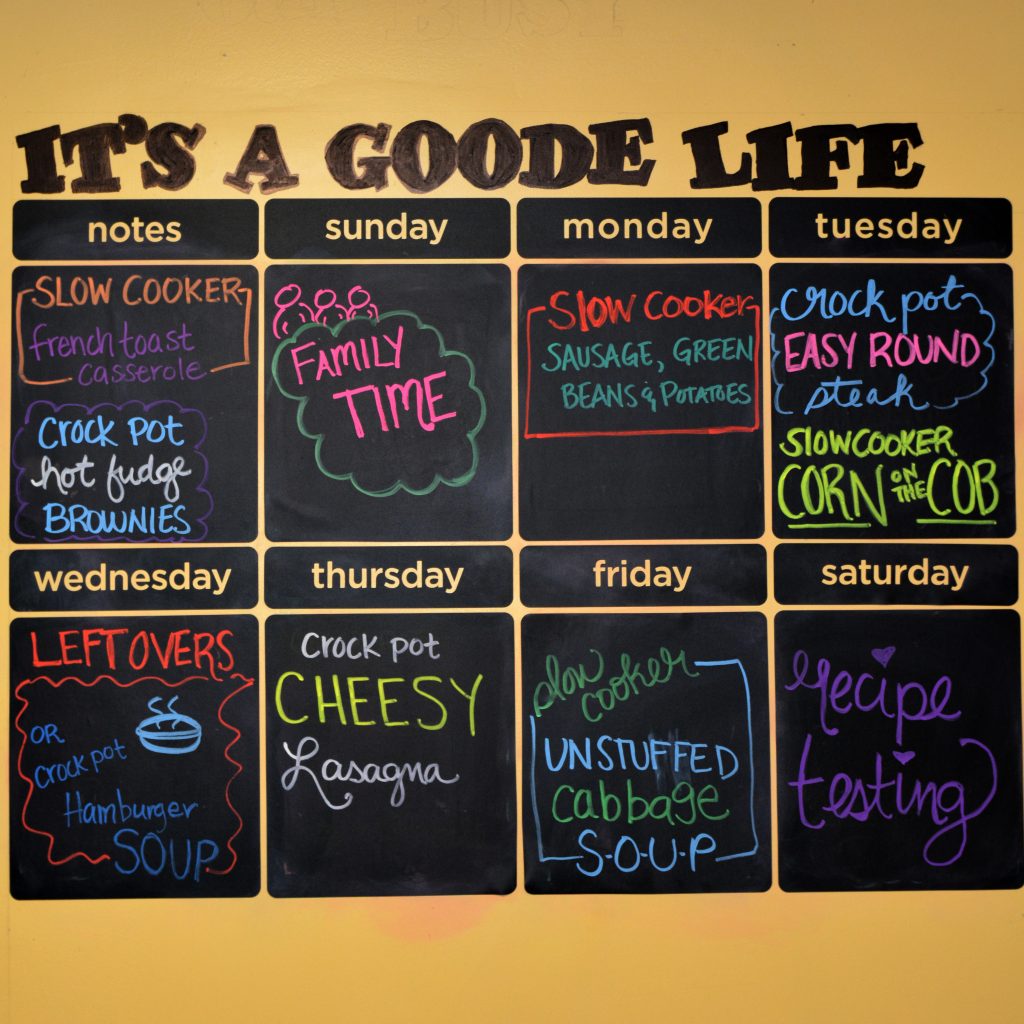 IT'S A GOODE LIFE
notes
SLOW COOKER
french toast
casserole
CROCK POT
hot fudge
BROWNIES
sunday
FAMILY
TIME
monday
SLOW COOKER
SAUSAGE, GREEN
BEANS & POTATOES
tuesday
crock pot
EASY ROUND
steak
SLOWCOOKER
CORN ON THE COB
wednesday
LEFTOVERS
OR
CROCK POT
Hamburger
SOUP
thursday
CROCK POT
CHEESY
Lasagna
friday
slow
cooker
UNSTUFFED
cabbage
S·O·U·P
saturday
recipe
testing